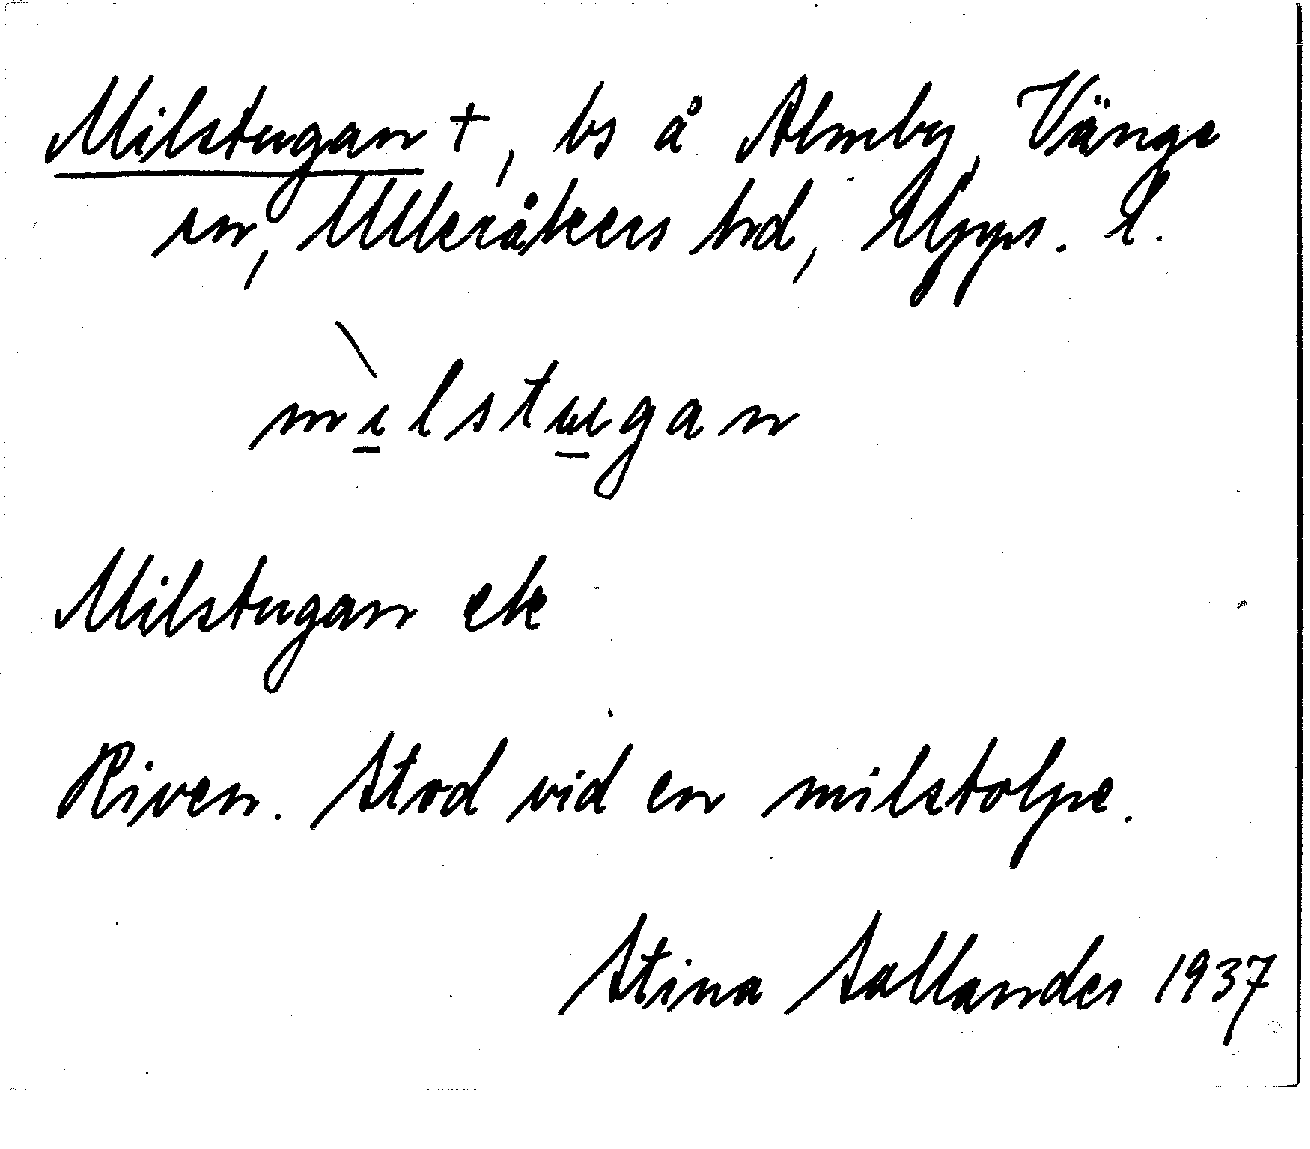 Milstugan †, bs å Almby, Vänge
sn, Ulleråkers hd, Upps. l.
mı̱̀lstu̱gan
Milstugan ek
Riven. Stod vid en milstolpe.
Stina Sallander 1937